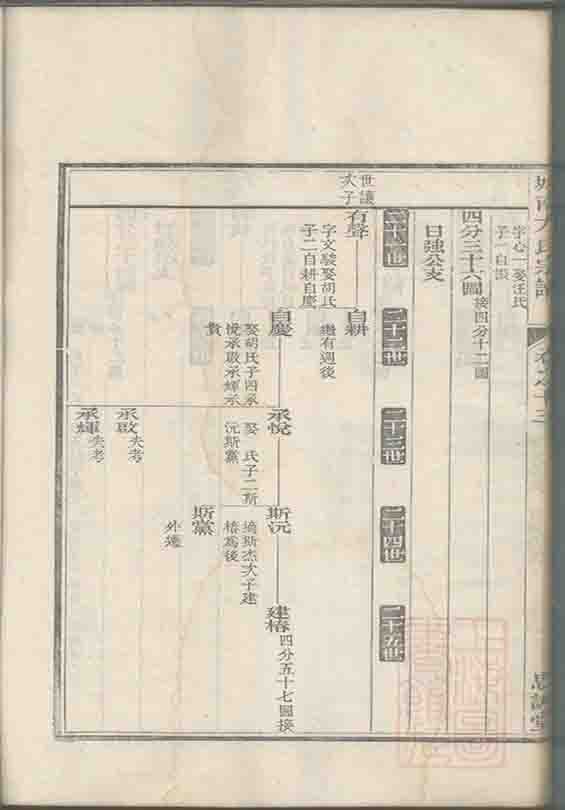 字心一娶汪氏
子一自
四分三十六圖
接四分十二圖
日強公支
二十一世
二十二世
二十三世
二十四世
二十五世
世讓
次子
有聲
字文駿娶胡氏
子二自耕自慶
自耕
繼有週後
自慶
娶胡氏子四承
悅承啟承輝承
貴
承悅
娶 氏子二斯
沅斯黨
斯沅
繼斯杰次子建
椿為後
建椿
四分五十七圖接
斯黨
外遷
承啟
失考
承輝
失考